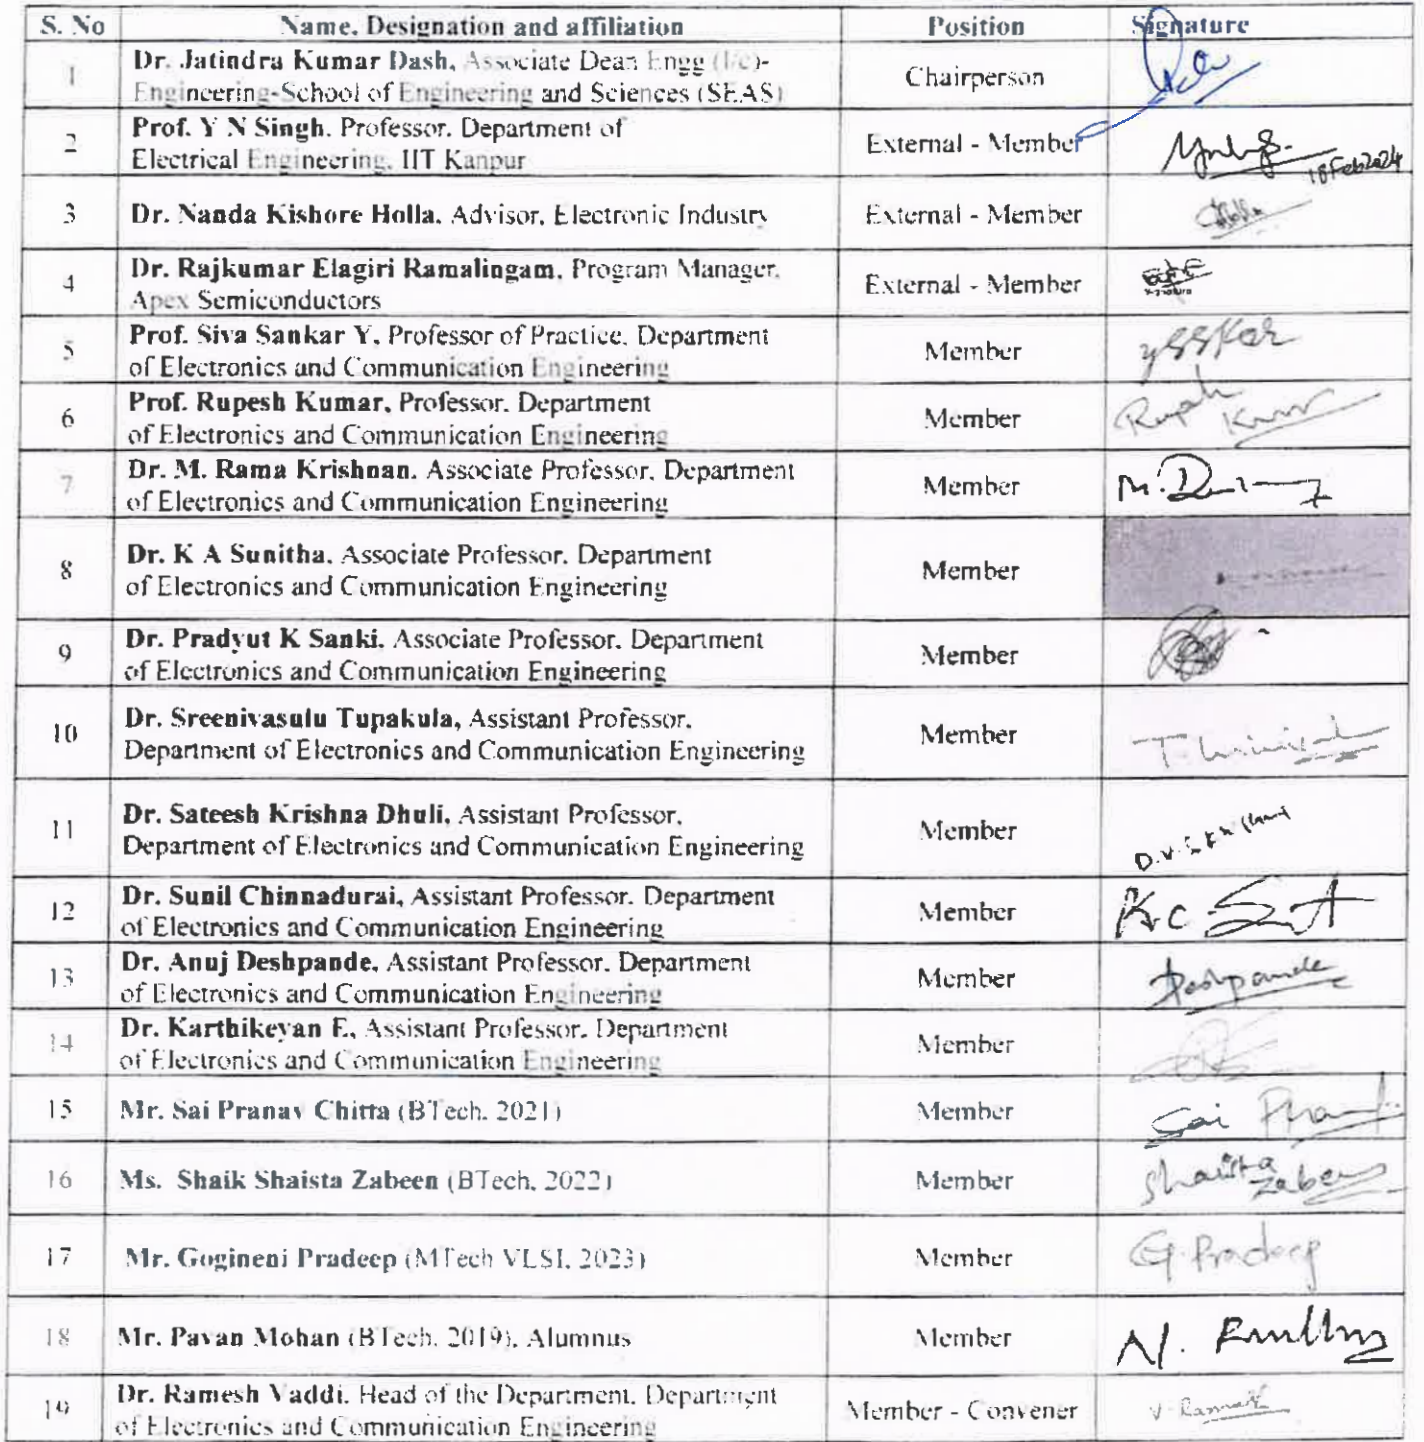 S. No Name, Designation and affiliation Position Signature
1 Dr. Jatindra Kumar Dash, Associate Dean Engg (I/c)- Chairperson
Engineering-School of Engineering and Sciences (SEAS)
2 Prof. Y N Singh, Professor, Department of External - Member
Electrical Engineering, IIT Kanpur
18Feb2024
3 Dr. Nanda Kishore Holla, Advisor, Electronic Industry External - Member
4 Dr. Rajkumar Elagiri Ramalingam, Program Manager, External - Member
Apex Semiconductors
5 Prof. Siva Sankar Y, Professor of Practice, Department Member
of Electronics and Communication Engineering
6 Prof. Rupesh Kumar, Professor, Department Member
of Electronics and Communication Engineering
7 Dr. M. Rama Krishnan, Associate Professor, Department Member
of Electronics and Communication Engineering
8 Dr. K A Sunitha, Associate Professor, Department Member
of Electronics and Communication Engineering
9 Dr. Pradyut K Sanki, Associate Professor, Department Member
of Electronics and Communication Engineering
10 Dr. Sreenivasulu Tupakula, Assistant Professor, Member
Department of Electronics and Communication Engineering
11 Dr. Sateesh Krishna Dhuli, Assistant Professor, Member
Department of Electronics and Communication Engineering
12 Dr. Sunil Chinnadurai, Assistant Professor, Department Member
of Electronics and Communication Engineering
13 Dr. Anuj Deshpande, Assistant Professor, Department Member Deshpande
of Electronics and Communication Engineering
14 Dr. Karthikeyan E, Assistant Professor, Department Member
of Electronics and Communication Engineering
15 Mr. Sai Pranav Chitta (BTech, 2021) Member Sai
16 Ms. Shaik Shaista Zabeen (BTech, 2022) Member Shaista
Zabeen
17 Mr. Gogineni Pradeep (MTech VLSI, 2023) Member G. Pradeep
18 Mr. Pavan Mohan (BTech, 2019), Alumnus Member
19 Dr. Ramesh Vaddi, Head of the Department, Department Member - Convener V. Ramesh
of Electronics and Communication Engineering